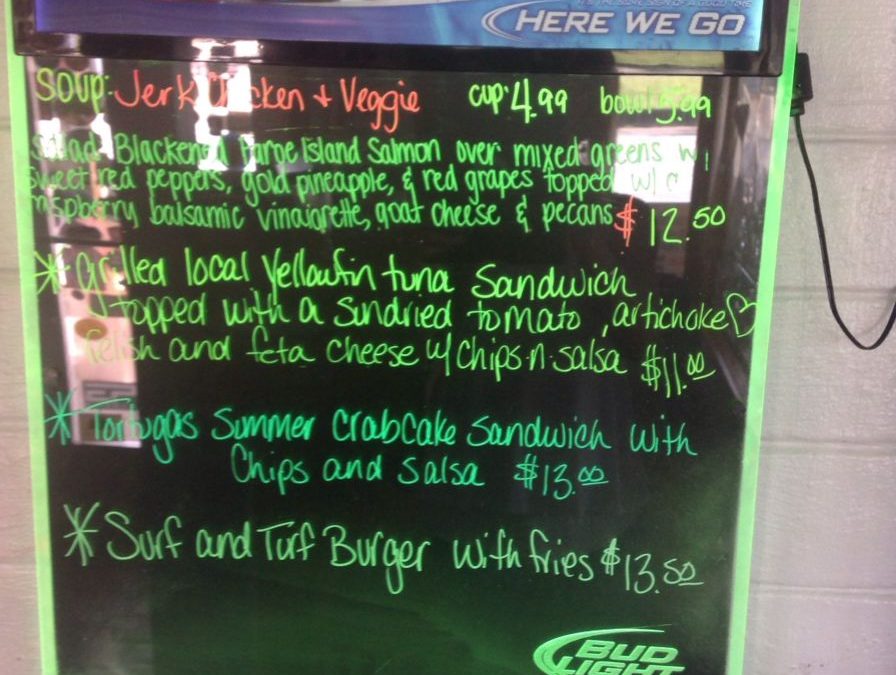 HERE WE GO
SOUP: Jerk Chicken + Veggie cup: 4.99 bowl 5.99
Salad Blackened Faroe Island Salmon over mixed greens w/
sweet red peppers, gold pineapple, & red grapes topped w/ a
raspberry balsamic vinaigrette, goat cheese & pecans $ 12.50
* Grilled local yellowfin tuna sandwich
topped with a sundried tomato, artichoke ♡
relish and feta cheese w/ chips-n-salsa $11.00
* Tortugas Summer crabcake sandwich with
Chips and Salsa $13.00
* Surf and Turf Burger with fries $13.50
BUD
LIGHT